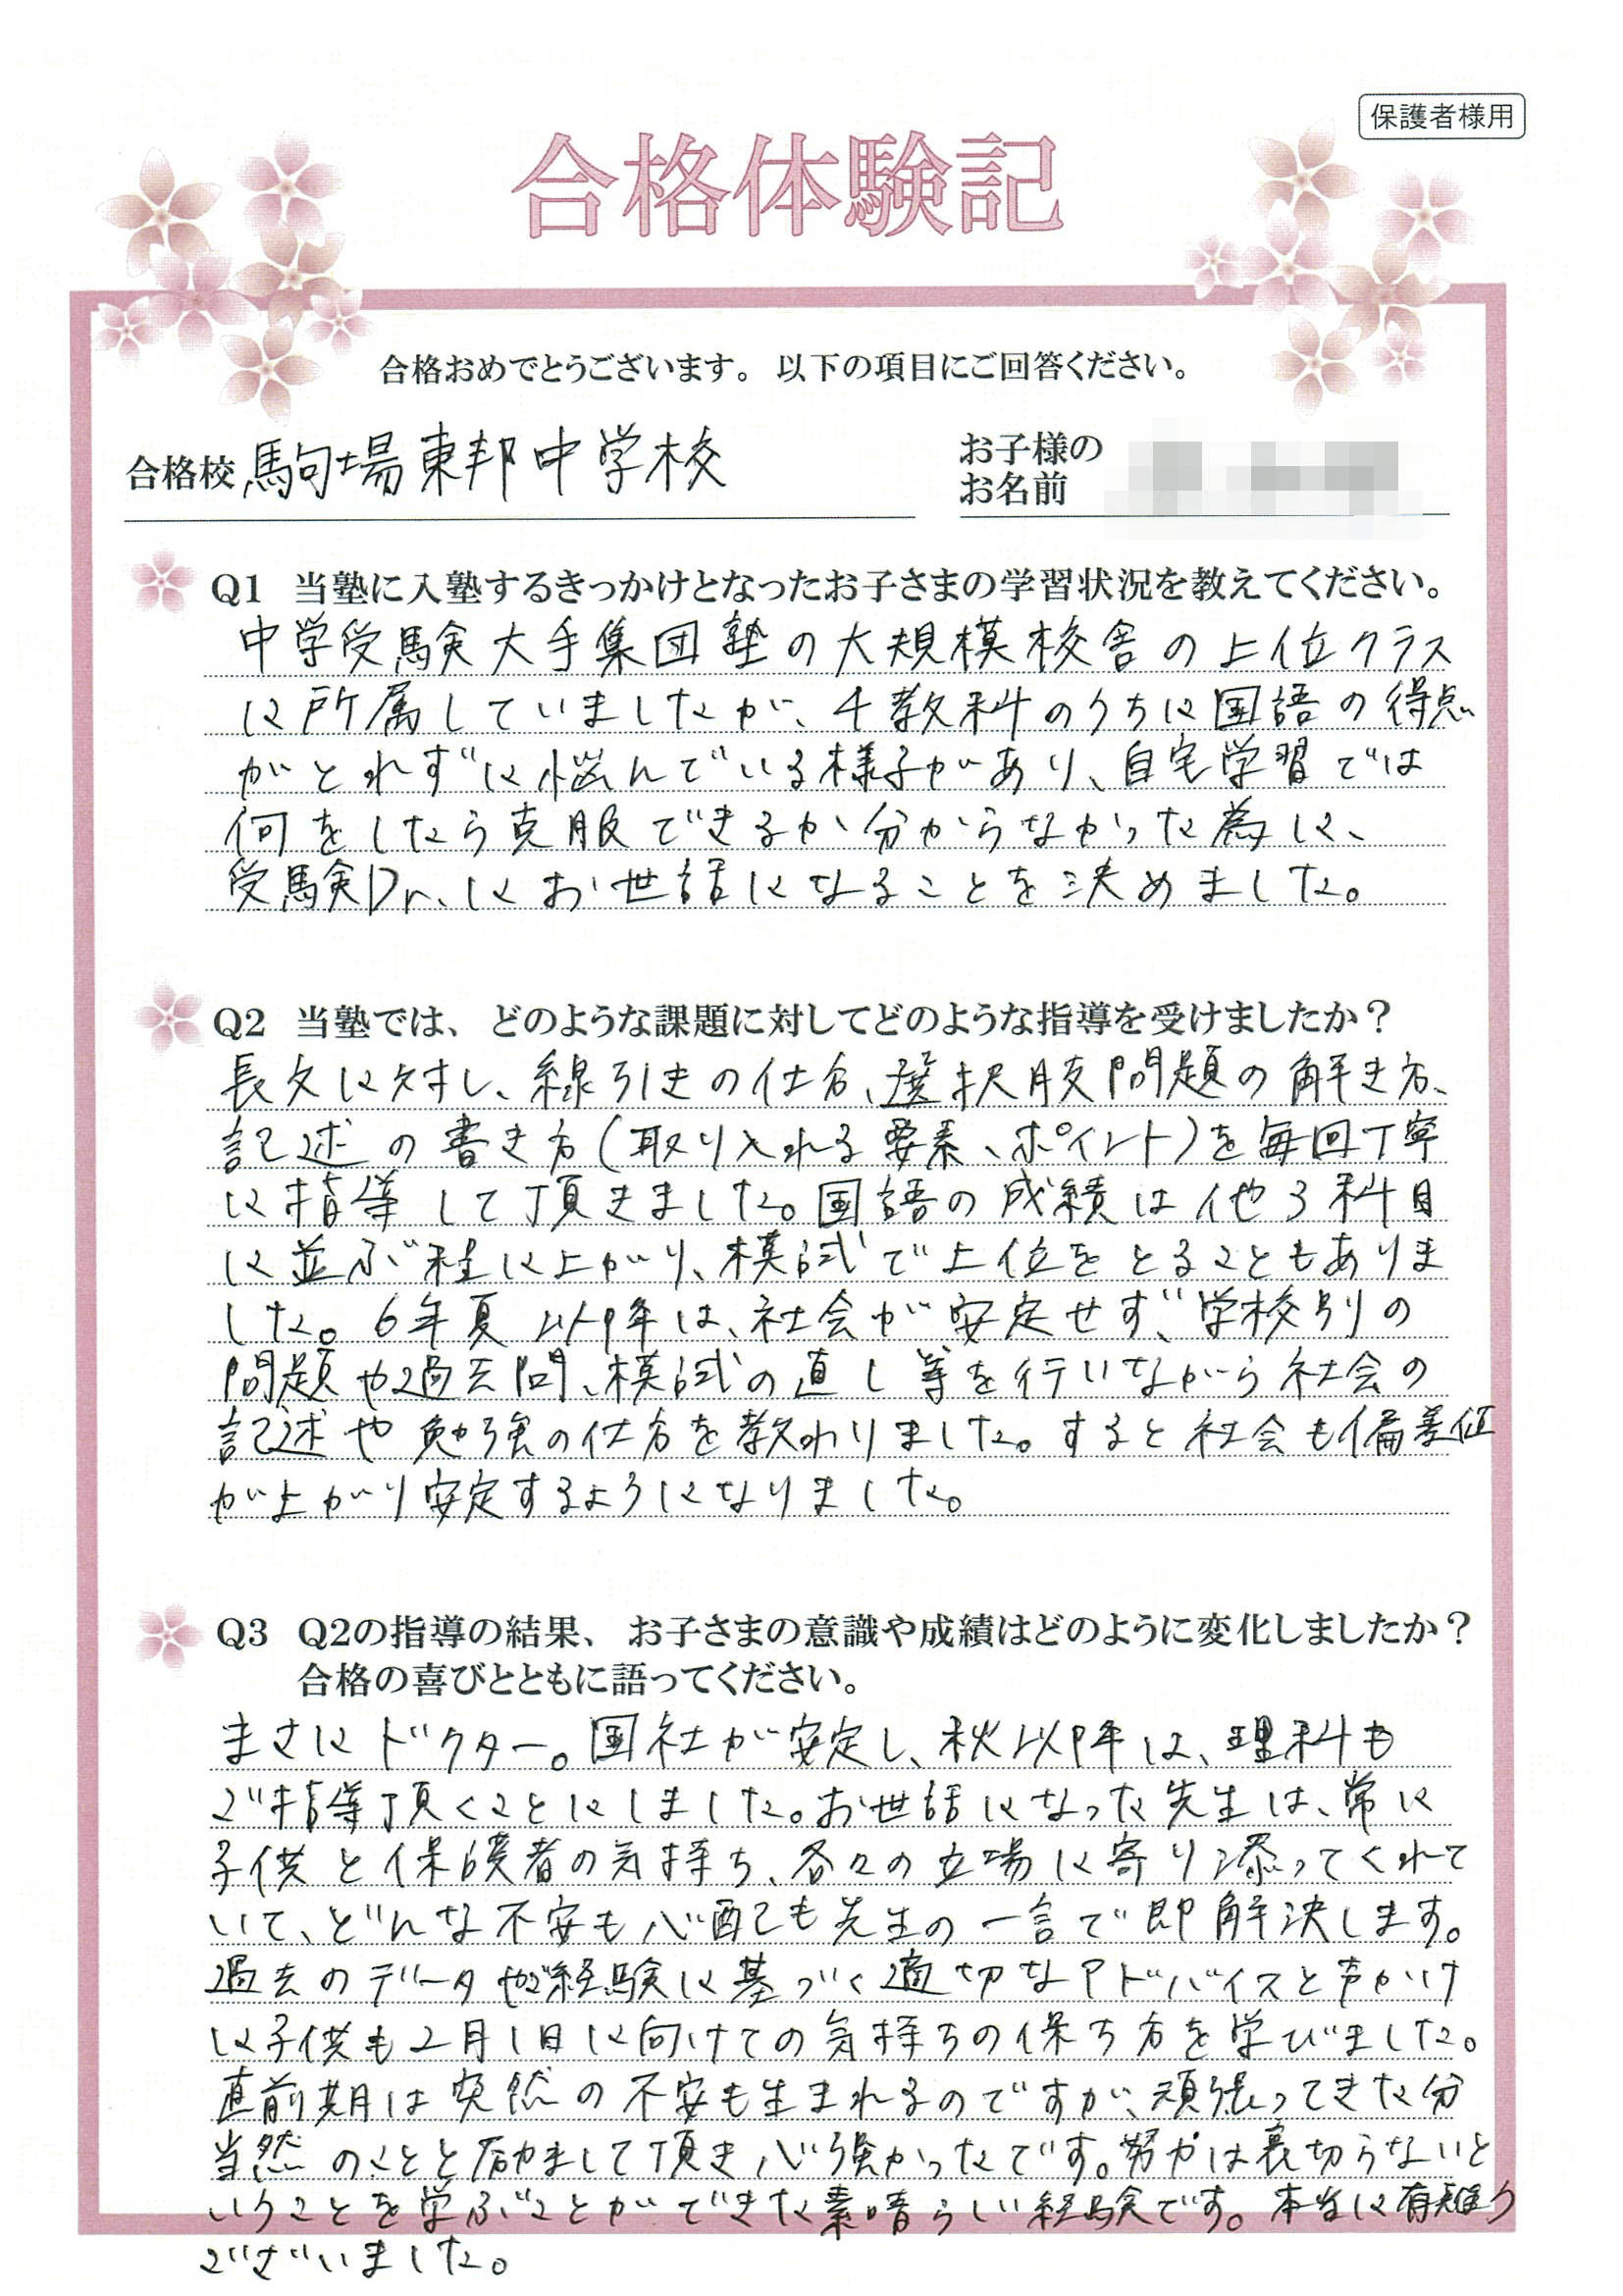 保護者様用
合格体験記
合格おめでとうございます。 以下の項目にご回答ください。
合格校 駒場東邦中学校
お子様の
お名前
Q1 当塾に入塾するきっかけとなったお子さまの学習状況を教えてください。
中学受験大手集団塾の大規模校舎の上位クラス
に所属していましたが、4教科のうちに国語の得点
がとれずに悩んでいる様子があり、自宅学習では
何をしたら克服できるか分からなかった為に、
受験Dr.にお世話になることを決めました。
Q2 当塾では、どのような課題に対してどのような指導を受けましたか？
長文に対し、線引きの仕方、選択肢問題の解き方、
記述の書き方(取り入れる要素、ポイント)を毎回丁寧
に指導して頂きました。国語の成績は他3科目
に並ぶ程に上がり、模試で上位をとることもありま
した。6年夏以降は、社会が安定せず、学校別の
問題や過去問、模試の直し等を行いながら社会の
記述や勉強の仕方を教わりました。すると社会も偏差値
が上がり安定するようになりました。
Q3 Q2の指導の結果、お子さまの意識や成績はどのように変化しましたか？
合格の喜びとともに語ってください。
まさにドクター。国社が安定し、秋以降は、理科も
ご指導頂くことにしました。お世話になった先生は、常に
子供と保護者の気持ち、各々の立場に寄り添ってくれて
いて、どんな不安も心配も先生の一言で即解決します。
過去のデータやご経験に基づく適切なアドバイスと声かけ
に子供も2月1日に向けての気持ちの保ち方を学びました。
直前期は突然の不安も生まれるのですが、頑張ってきた分
当然のことと励まして頂き心強かったです。努力は裏切らないと
いうことを学ぶことができた素晴らしい経験です。本当に有難う
ございました。